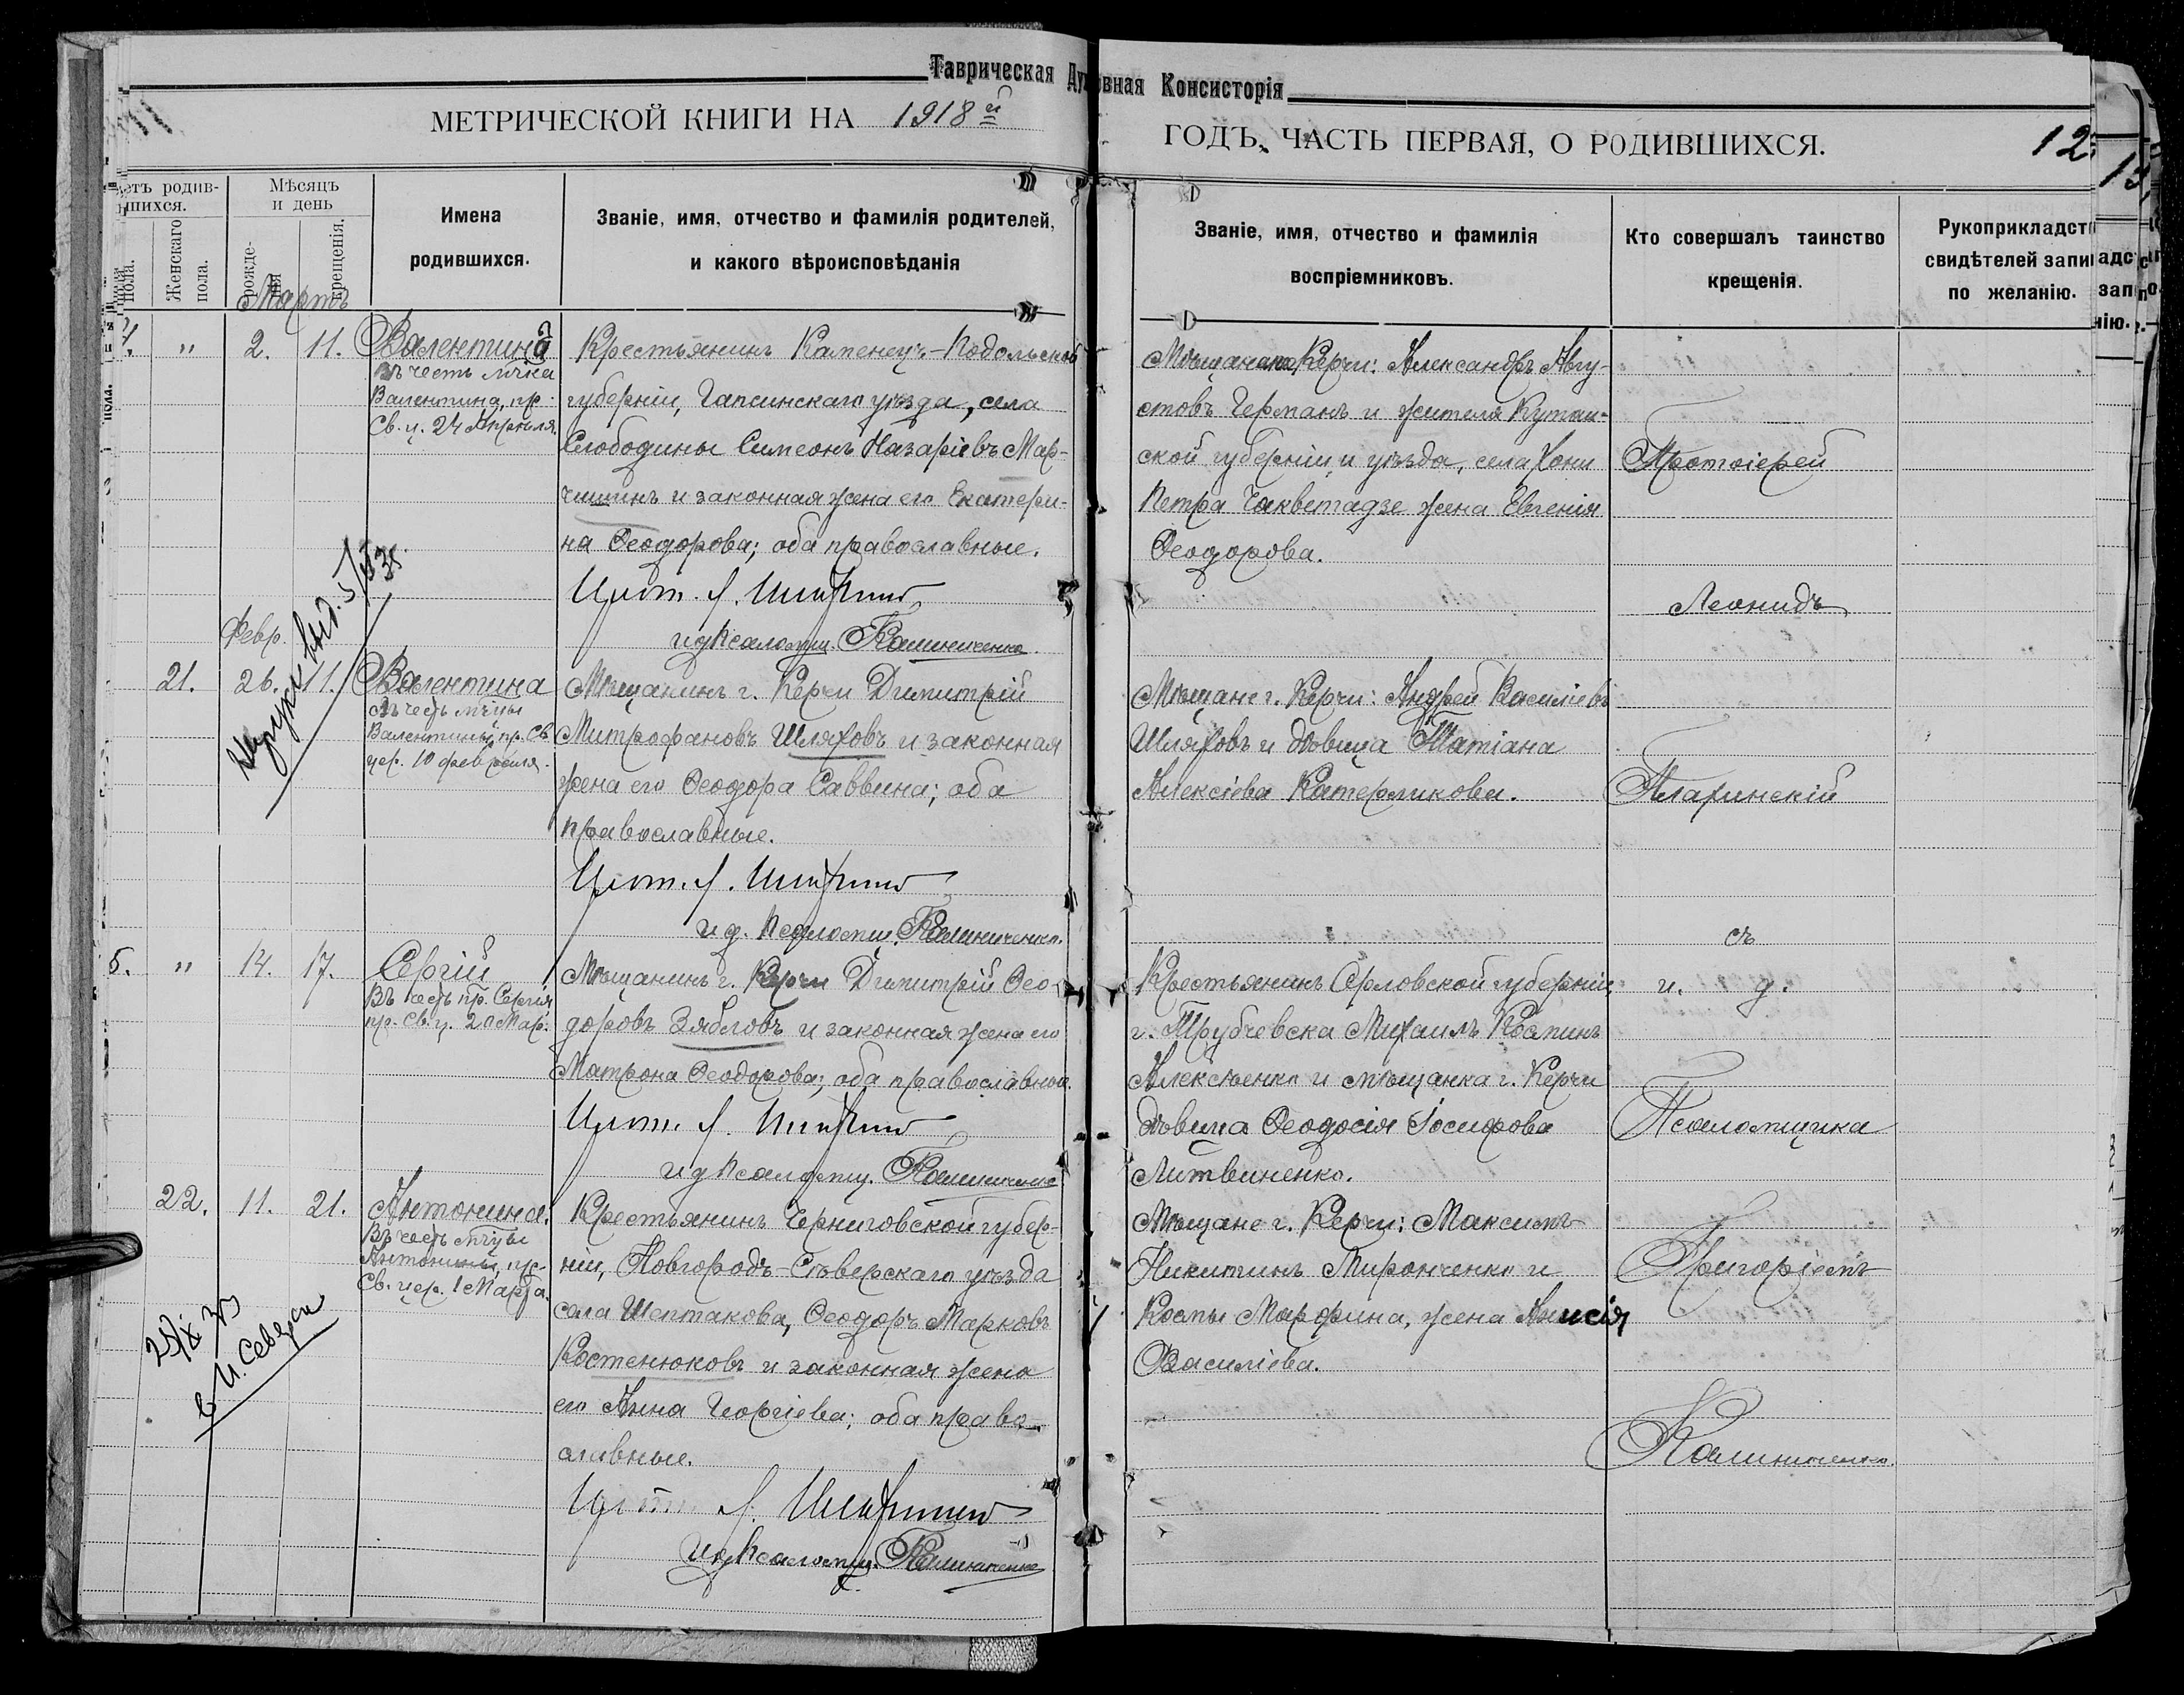 Таврическая Духовная Консисторія
МЕТРИЧЕСКОЙ КНИГИ НА 1918й
ГОДЪ, ЧАСТЬ ПЕРВАЯ, О РОДИВШИХСЯ.
12
Мѣсяцъ
и день
родив-
шихся.
Женскаго
пола.
рожде-
нія
крещенія.
Имена
родившихся.
Званіе, имя, отчество и фамилія родителей,
и какого вѣроисповѣданія
Званіе, имя, отчество и фамилія
воспріемниковъ.
Кто совершалъ таинство
крещенія.
Рукоприкладст
свидѣтелей запи
по желанію.
Мартъ
" 2. 11. Валентинъ
Въ честь мчка
Валентина, пр.
Св. ц. 24 Апрѣля.
Крестьянинъ Каменецъ-Подольской
губерніи, Гапсинскаго уѣзда, села
Слободины Симеонъ Назаріевъ Мар-
чишинъ и законная жена его Екатери-
на Ѳеодорова; оба православные.
Прот. Л.
и д Псаломщ. Калиниченко.
Керчи: Александръ Авгу-
стовъ Германъ и жителя Кутаи-
ской губерніи и уѣзда, села Хони
Петра Чакветадзе жена Евгенія
Ѳеодорова.
Протоіерей
Леонидъ
выд. 5/
Февр.
21. 26. 11. Валентина
Въ честь мчцы
Валентины, пр. Св
цер. 10 февраля.
Мѣщанинъ г. Керчи Димитрій
Митрофановъ Шляховъ и законная
жена его Ѳеодора Саввина; оба
православные.
Прот. Л.
и д. Псаломщ. Калиниченко.
Мѣщане г. Керчи: Андрей Василіевъ
Шляховъ и дѣвица Татіана
Алексіева Катерликова.
съ
5. " 14. 17. Сергій
Въ честь пр. Сергія
пр. Св. ц. 20 Мар.
Мѣщанинъ г. Керчи Димитрій Ѳео-
доровъ Зябловъ и законная жена его
Матрона Ѳеодорова; оба православные.
Прот. Л.
и д Псаломщ. Калиниченко
Крестьянинъ Орловской губерніи,
г. Трубчевска Михаилъ Косминъ
Алексѣенко и мѣщанка г. Керчи
дѣвица Ѳеодосія Іосифова
Литвиненко.
и. д.
Псаломщика
22. 11. 21. Антонина.
Въ честь мчцы
Антонины, пр.
Св. цер. 1 Марта.
Крестьянинъ Черниговской губер-
ніи, Новгородъ-Сѣверскаго уѣзда
села Шептакова, Ѳеодоръ Марковъ
Костенюковъ и законная жена
его Анна Георгіева; оба право-
славные.
Прот. Л.
и д Псаломщ. Калиниченко
Мѣщане г. Керчи: Максимъ
Никитинъ Миронченко и
Космы Марфина, жена Анисія
Василіева.
Григоріемъ
Калиниченко.